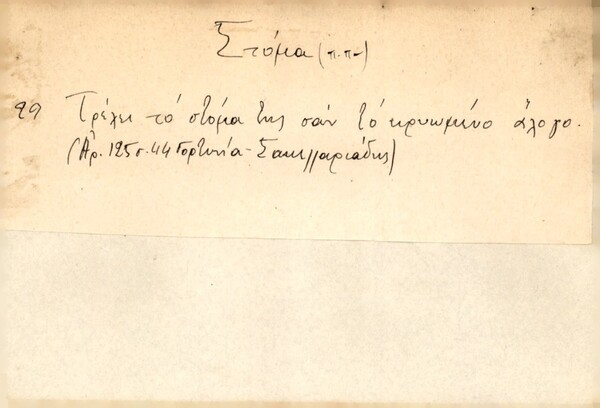 Στόμα (π.π-)
99 Τρέχει τό στόμα της σάν τό κρυωμένο άλογο.
(Αρ. 125 σ. 44 Γορτυνία - Σακελλαριάδης)